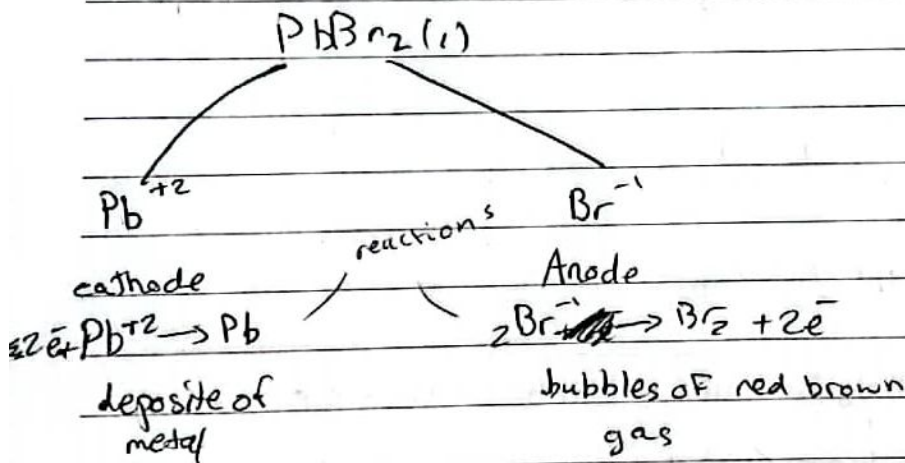 PbBr2(l)
Pb+2 Br-1
reactions
cathode Anode
2e-+Pb+2 → Pb 2Br-1 → Br2 + 2e-
deposite of bubbles of red brown
metal gas